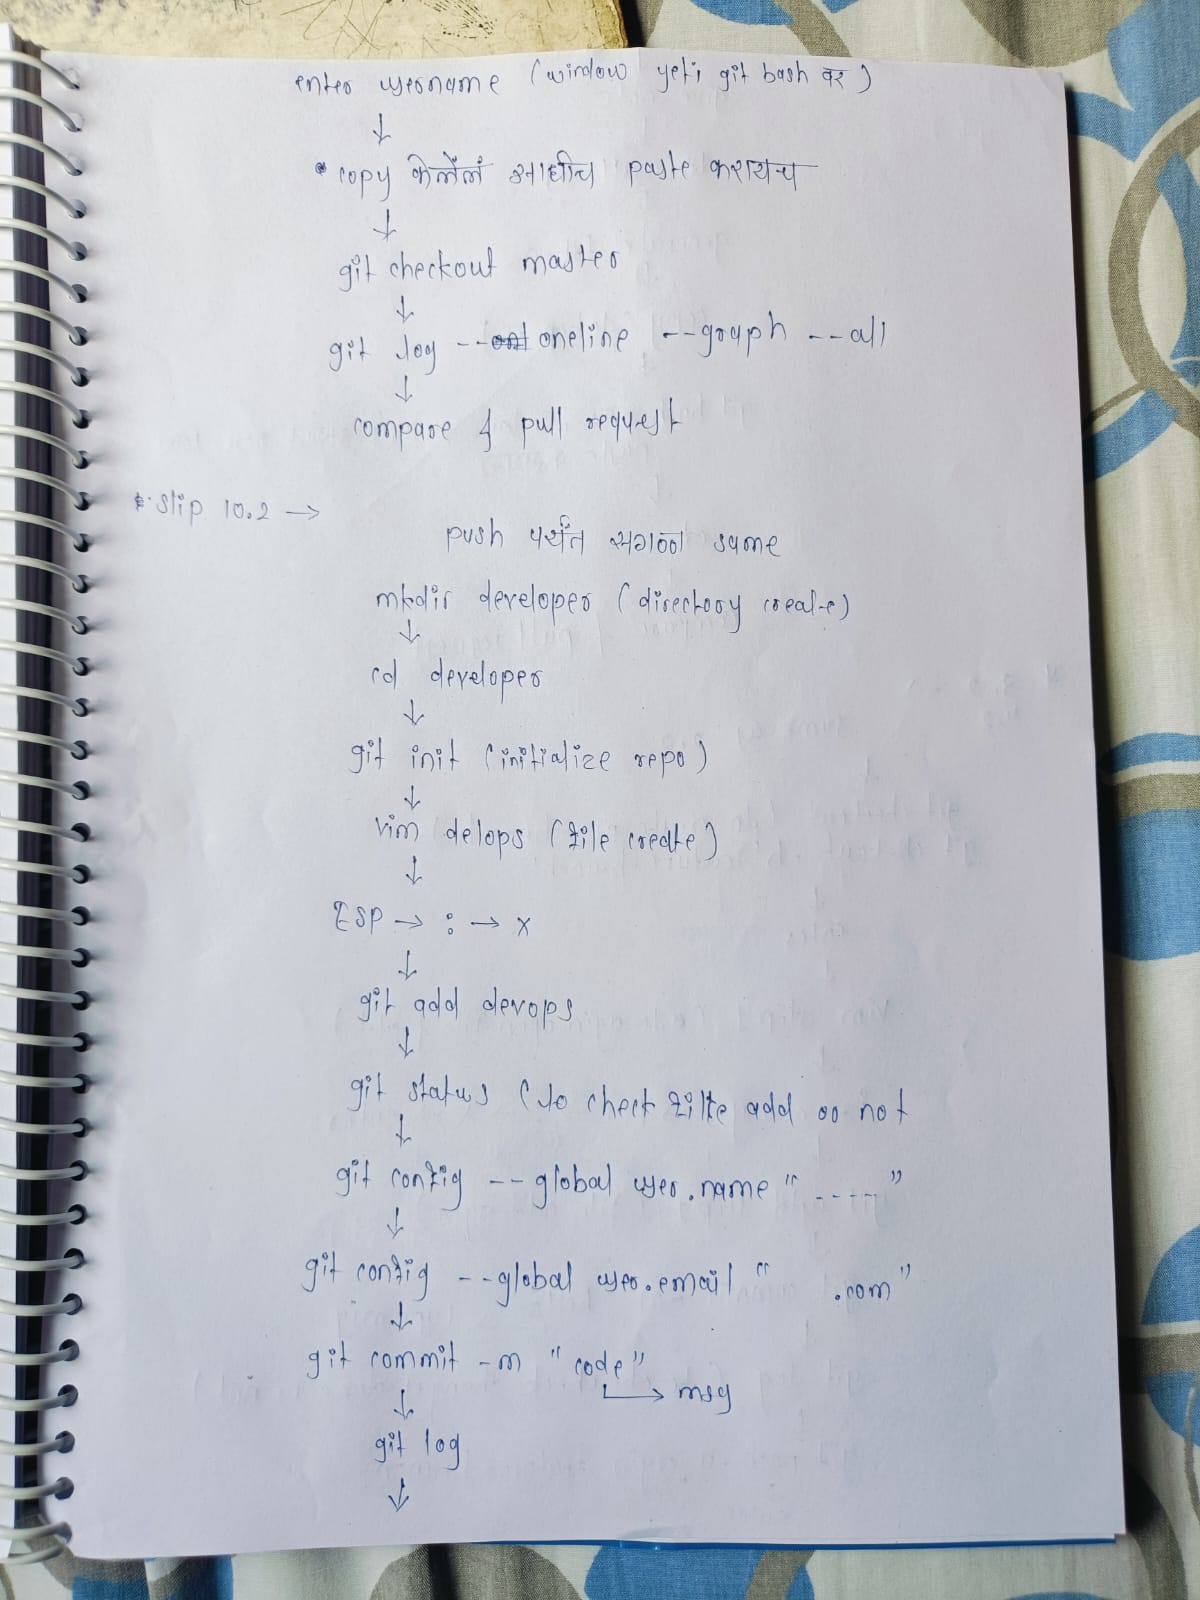 enter username (window yeti git bash वर)
↓
• copy केलेलं आधीच paste करायच
↓
git checkout master
↓
git log --oneline --graph --all
↓
compare & pull request
* slip 10.2 →
push पर्यंत सगळ same
mkdir developer (directory create)
↓
cd developer
↓
git init (initialize repo)
↓
vim delops (file create)
↓
ESP → : → x
↓
git add devops
↓
git status (to check file add or not
↓
git config --global user.name "-----"
↓
git config --global user.email " .com"
↓
git commit -m "code"
→ msg
↓
git log
↓